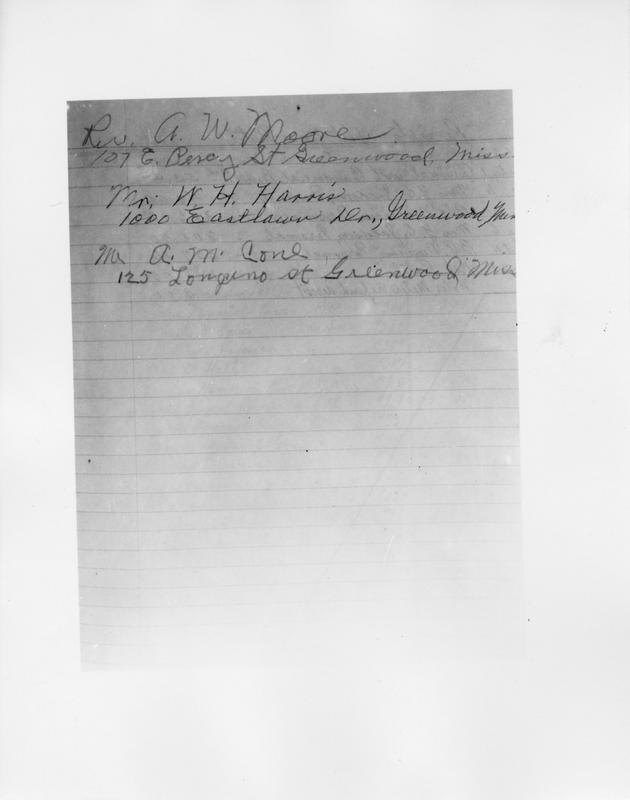 Rev. A. W. Moore
107 E. Percy St Greenwood, Miss
Mr. W. H. Harris
1000 Eastlawn Dr., Greenwood, Miss
Mr A. M. Cone
125 Longino st Greenwood, Miss